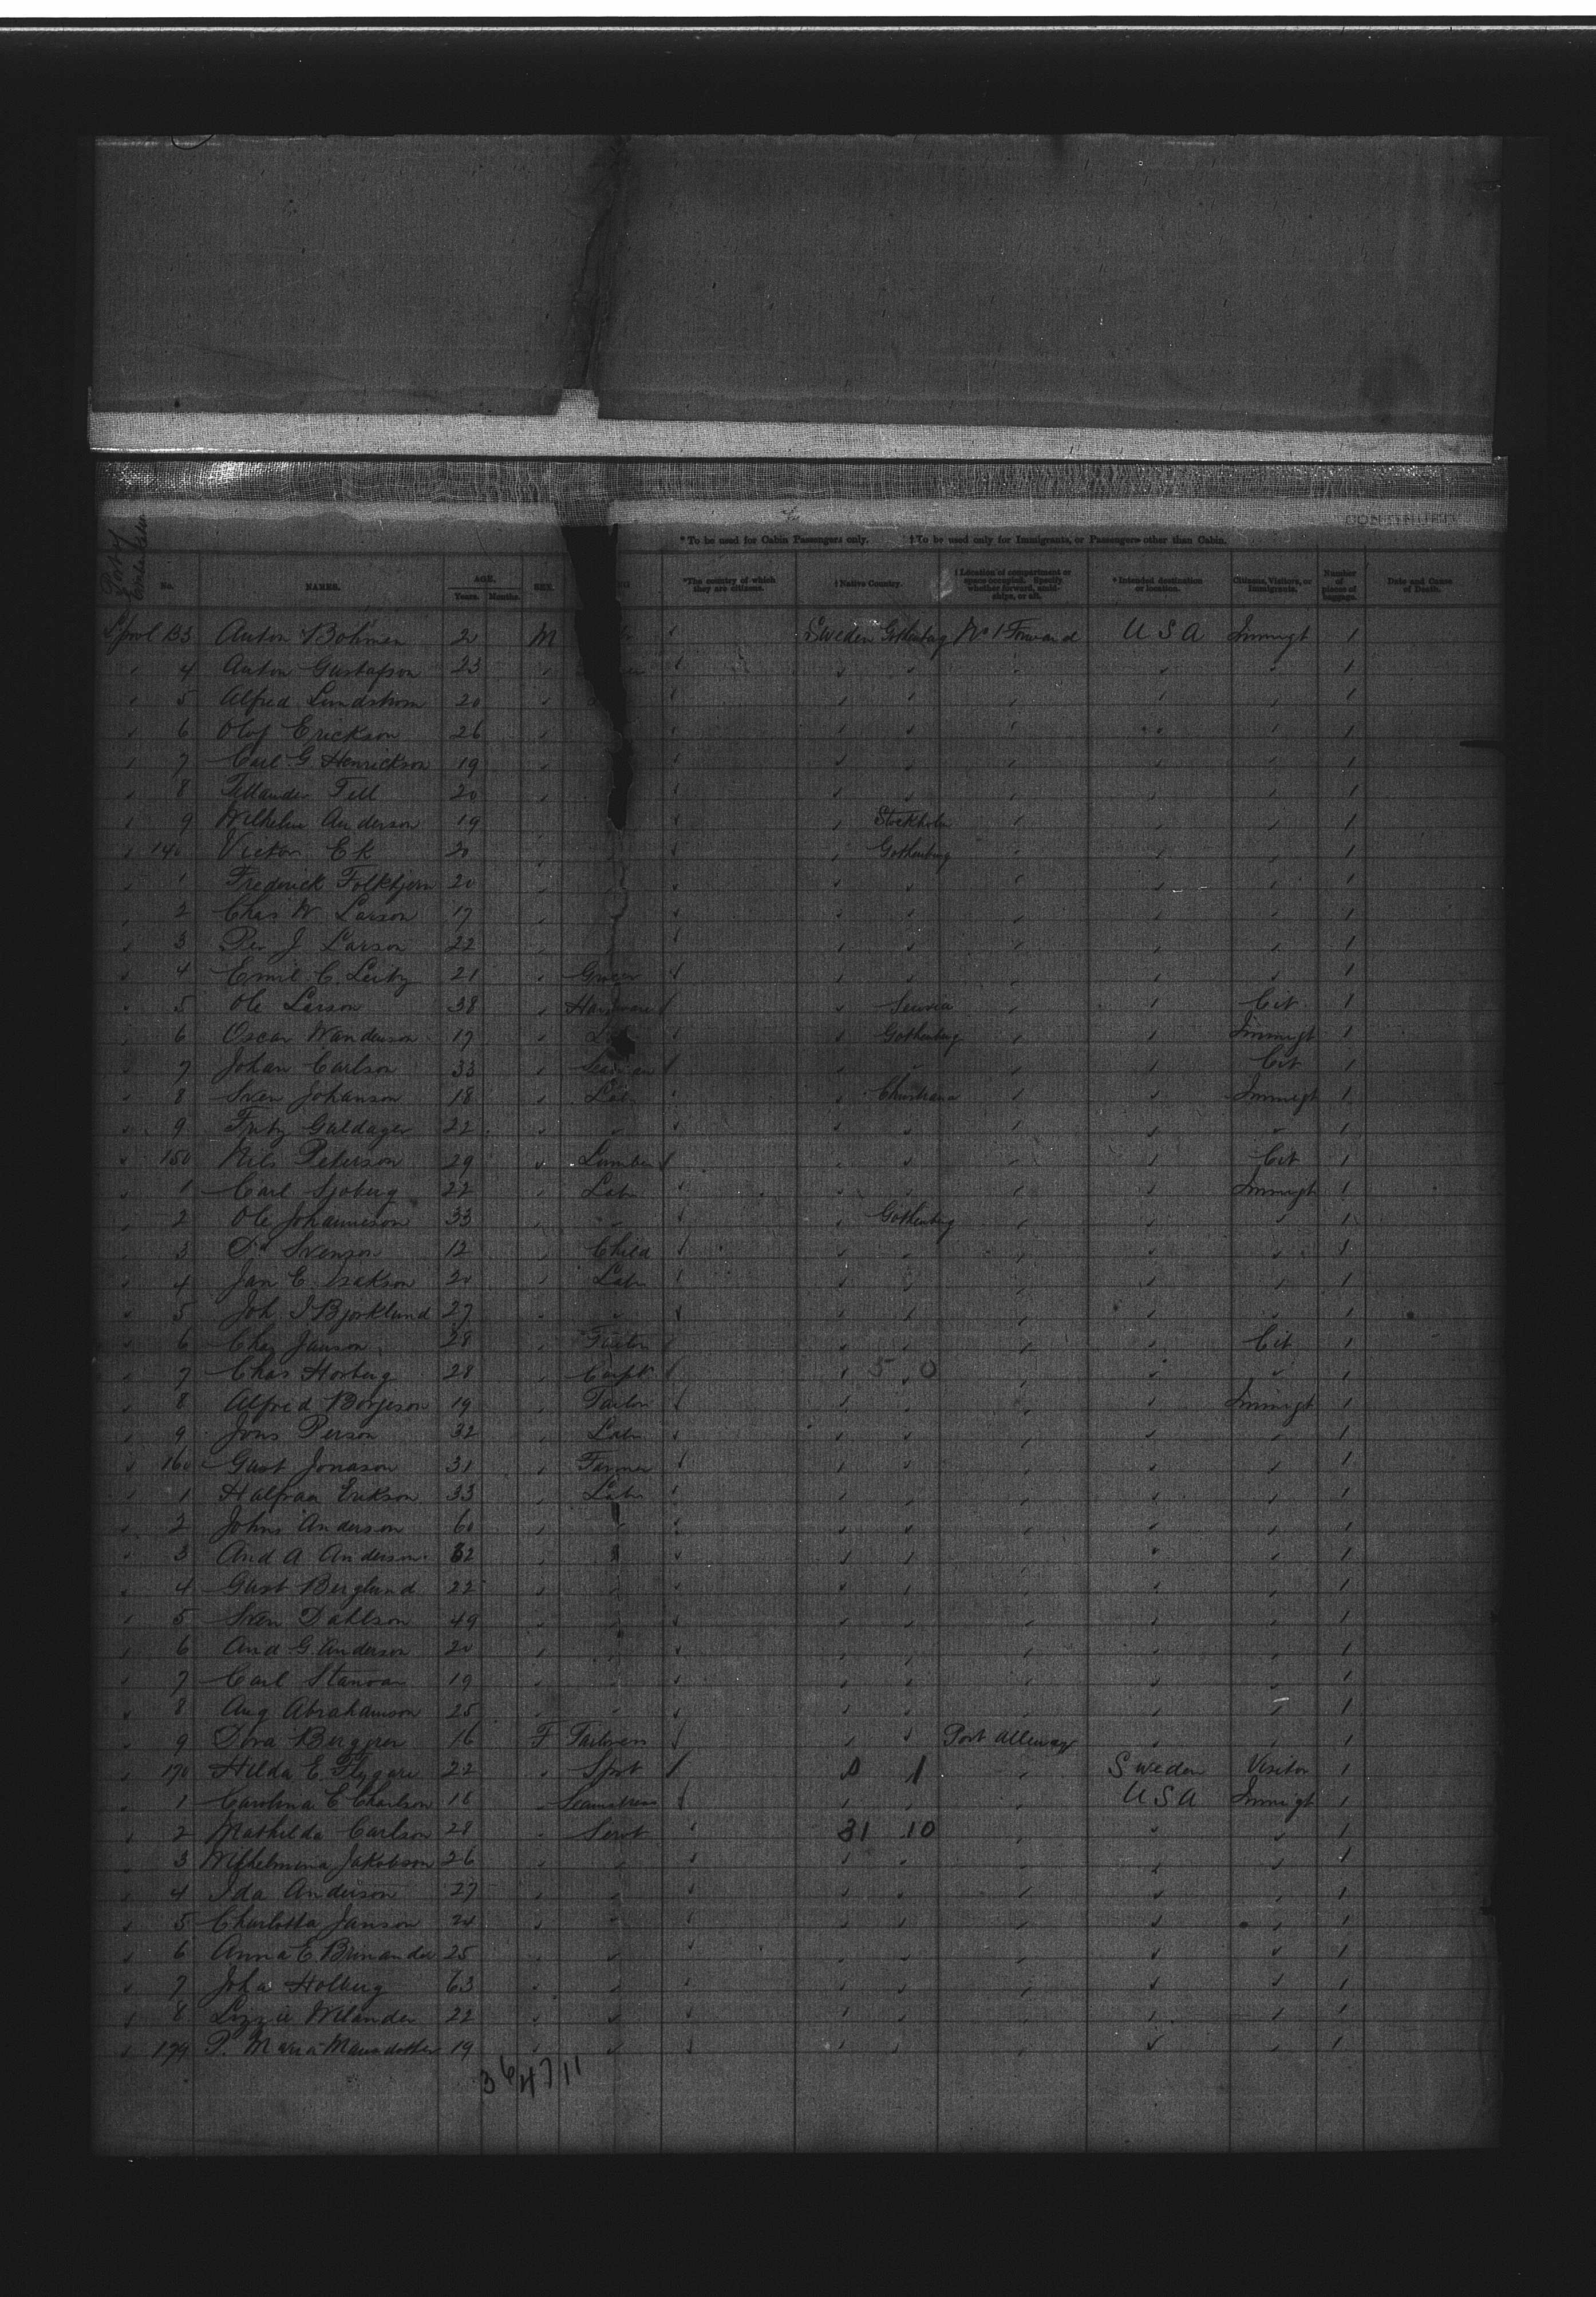 CONTINUED
*To be used for Cabin Passengers only. †To be used only for Immigrants, or Passengers other than Cabin.
Port of Embarkation No. NAMES. AGE. Years. Months. SEX. *The country of which they are citizens. †Native Country. †Location of compartment or space occupied. Specify whether forward, amidships, or aft. *Intended destination or location. Citizens, Visitors, or Immigrants. Number of pieces of baggage. Date and Cause of Death.
L'pool 133 Anton Bohman 20 M Sweden Gothenbug No 1 Forward U S A Immigt 1
4 Anton Gustafson 23 1
5 Alfred Lundstrom 20 1
6 Olof Erickson 26 1
7 Carl G Henrickson 19 1
8 Fellander Tell 20 1
9 Wilhelm Anderson 19 Stockholm 1
140 Victor Ek 20 Gothenburg 1
1 Frederick Folkbjern 20 1
2 Chas W Larson 17 1
3 Per J Larson 22 1
4 Emil C. 21 Grocer 1
5 Ole Larson 38 Hardware Cit 1
6 Oscar Wanderson 17 Gothenburg Immigt 1
7 Johan Carlson 33 Seaman Cit 1
8 Sven Johanson 18 Labr Christiana Immigt 1
9 Fritz Galdager 22 1
150 Nils Peterson 29 Cit 1
1 Carl Sjoberg 22 Labr Immigt 1
2 Ole Johanneson 33 Gothenburg 1
3 Svenson 12 Child 1
4 Jan E. Isakson 20 Labr 1
5 Joh I Bjorklund 27 1
6 Chas Janson 28 Cit 1
7 Chas Horberg 28 Carpt 5 0 1
8 Alfred Borjeson 19 Tailor Immigt 1
9 Jons Person 32 Labr 1
160 Gust Jonason 31 Farmer 1
1 Erikson 33 Labr 1
2 Johns Anderson 60 1
3 And A Anderson 62 1
4 Gust Berglund 22 1
5 Sven Dahlson 49 1
6 And G. Anderson 20 1
7 Carl 19 1
8 Aug Abrahamson 25 1
9 Berggren 16 F Tailoress Port Alleway 1
170 Hilda E. Flygare 22 0 1 Sweden Visitor 1
1 Carolina E Charlson 18 Seamstress U S A Immigt 1
2 Mathilda Carlson 28 Servt 31 10 1
3 Wilhelmina Jakobson 26 1
4 Ida Anderson 27 1
5 Charlotta Janson 24 1
6 Anna E Brinander 25 1
7 Joha Holberg 63 1
8 Lizzie Welander 22 1
179 P. Maria Mansdotter 19 1